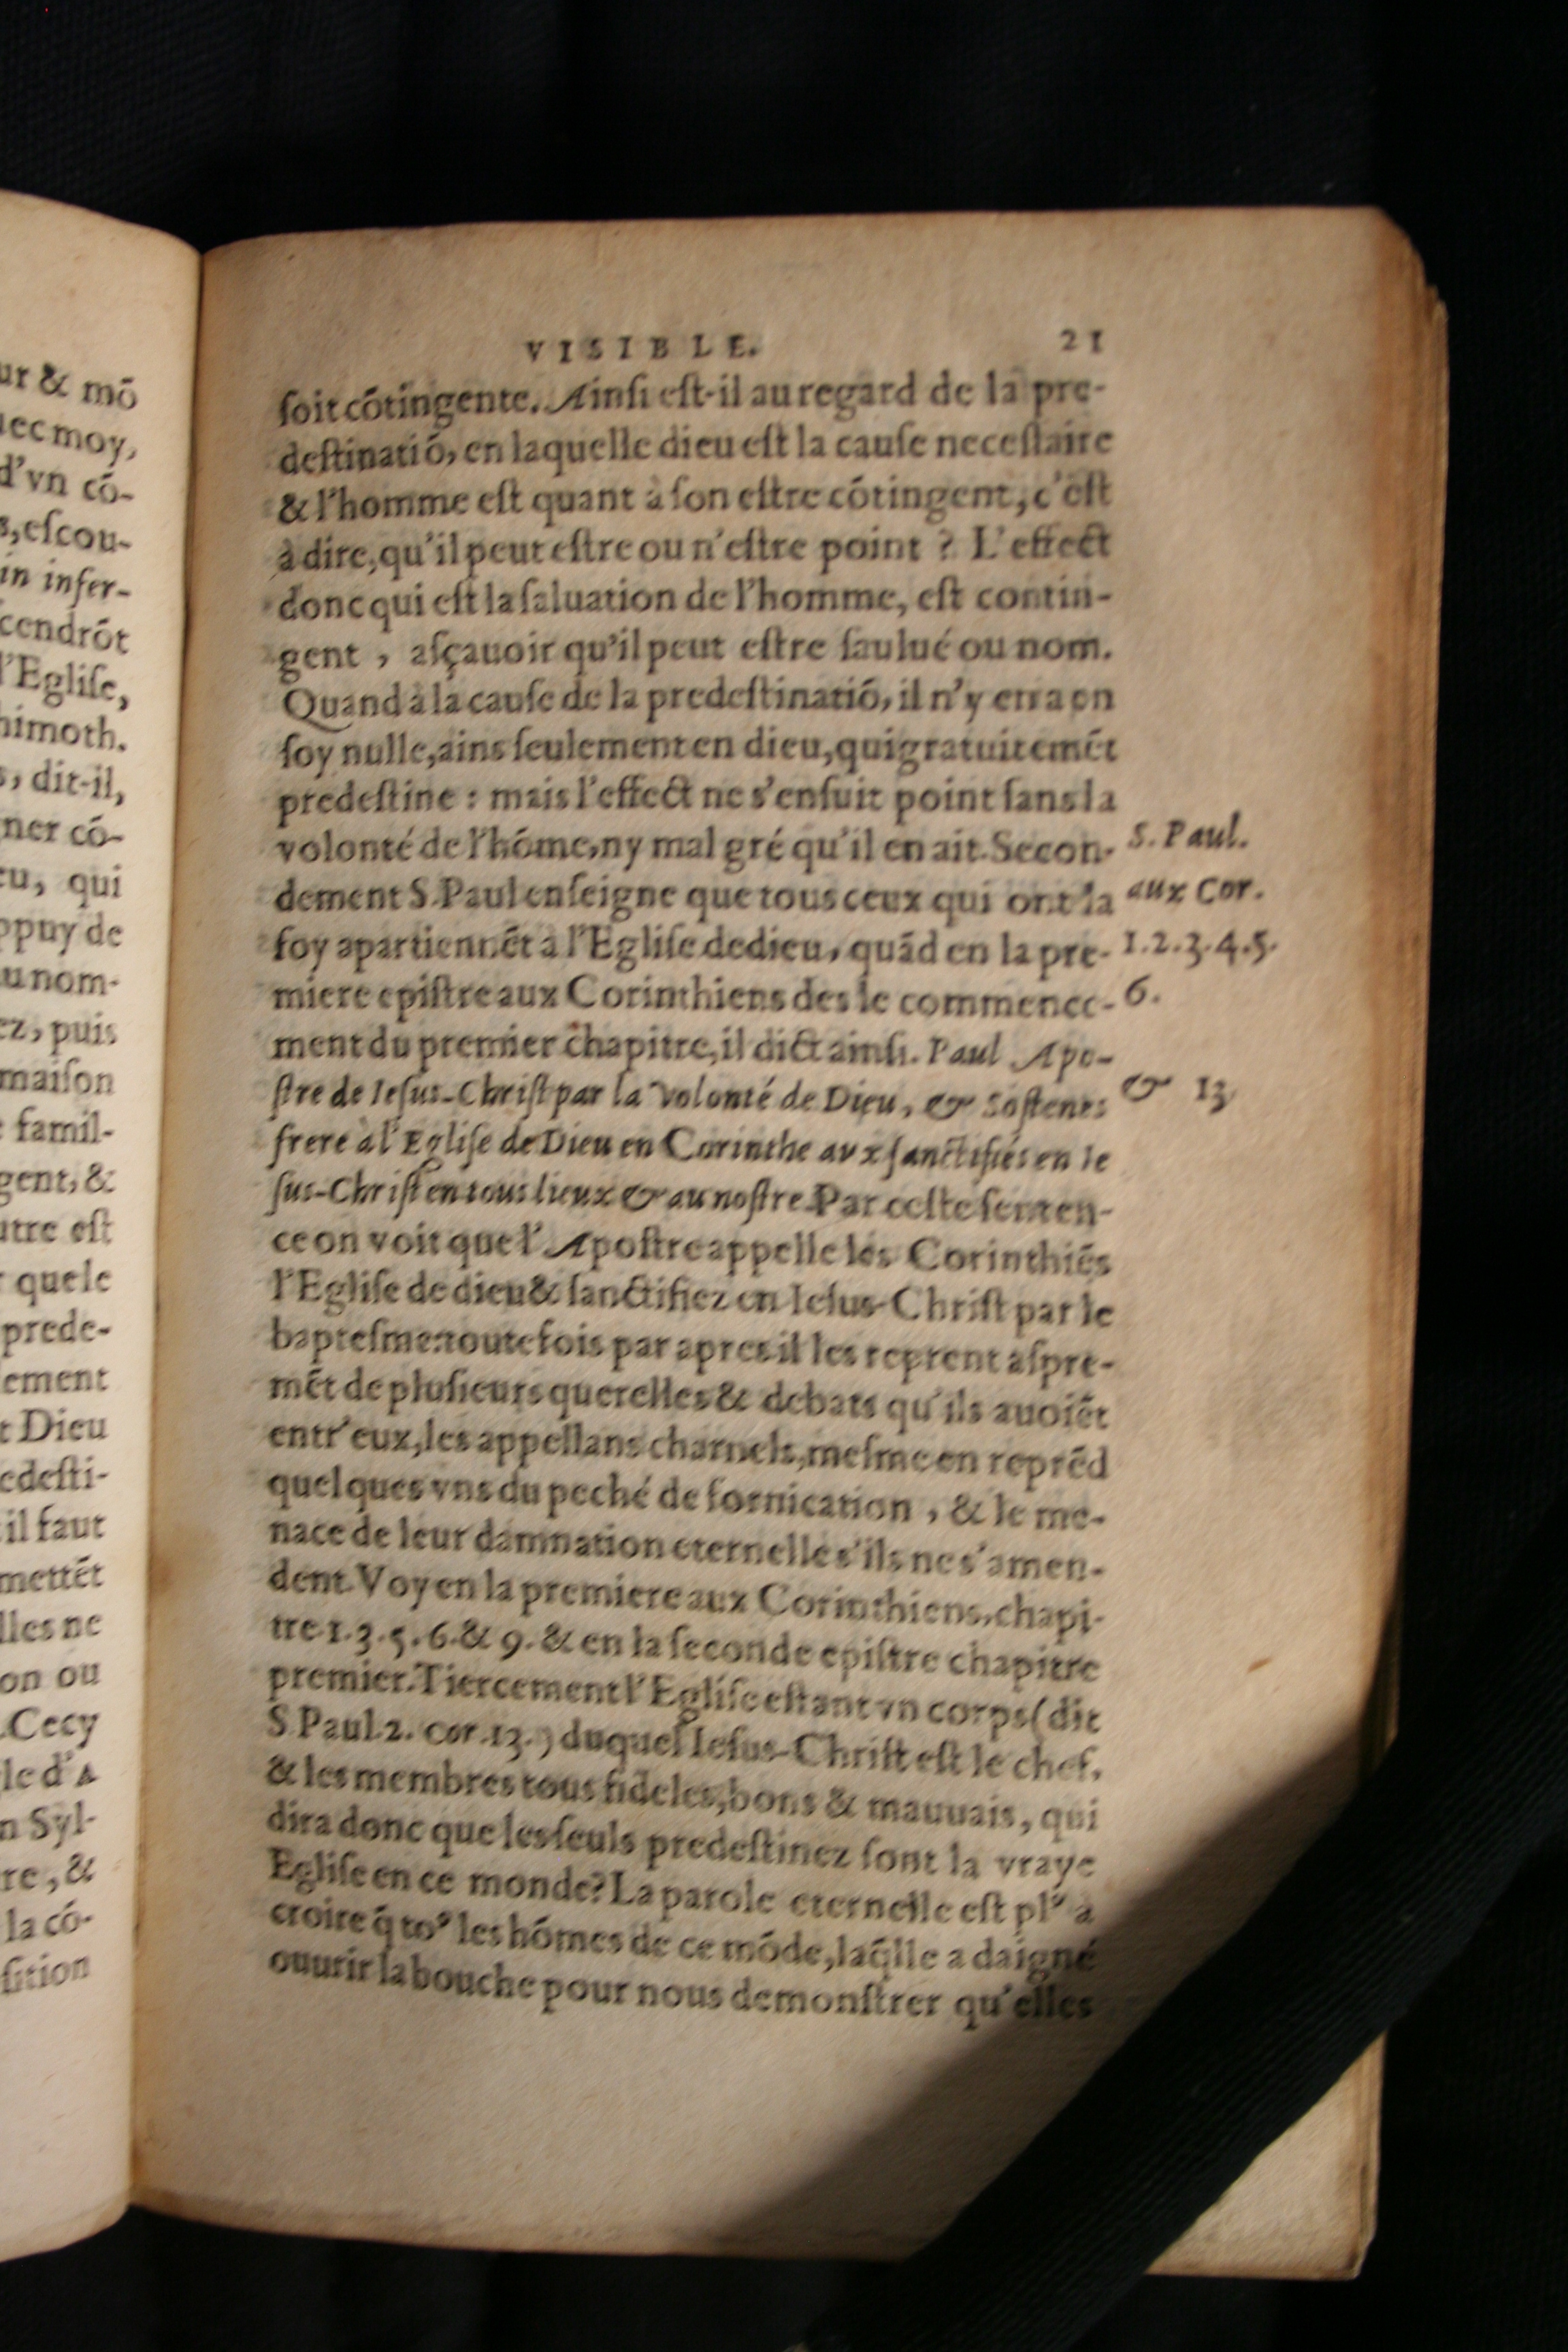 ur & mō
uec moy,
d'vn cō-
s, eſcou-
in infer-
cendrōt
l'Egliſe,
himoth.
s, dit-il,
ner cō-
eu, qui
ppuy de
u nom-
ez, puis
maiſon
famil-
gent, &
utre eſt
quele
prede-
lement
t Dieu
edeſti-
il faut
mettēt
lles ne
on ou
.Cecy
le d'A
n Syl-
re, &
la cō-
ſition
VISIBLE. 21
ſoit cōtingente. Ainſi eſt-il au regard de la pre-
deſtinatiō, en laquelle dieu eſt la cauſe neceſſaire
& l'homme eſt quant à ſon eſtre cōtingent, c'eſt
à dire, qu'il peut eſtre ou n'eſtre point ? L'effect
donc qui eſt la ſaluation de l'homme, eſt contin-
gent , aſçauoir qu'il peut eſtre ſaulué ou nom.
Quand à la cauſe de la predeſtinatiō, il n'y en a en
ſoy nulle, ains ſeulement en dieu, qui gratuitemēt
predeſtine : mais l'effect ne s'enſuit point ſans la
volonté de l'hōme, ny mal gré qu'il en ait. Secon-
dement S. Paul enſeigne que tous ceux qui ont la
foy apartiennēt à l'Egliſe de dieu, quād en la pre-
miere epiſtre aux Corinthiens des le commence-
ment du premier chapitre, il dict ainſi. Paul Apo-
ſtre de Ieſus-Chriſt par la volonté de Dieu, & Soſtenes
frere à l'Egliſe de Dieu en Corinthe aux ſanctifiés en Ie
ſus-Chriſt en tous lieux & au noſtre. Par ceſte ſenten-
ce on voit que l'Apoſtre appelle les Corinthiēs
l'Egliſe de dieu & ſanctifiez en Ieſus-Chriſt par le
bapteſme: toutefois par apres il les reprent aſpre-
mēt de pluſieurs querelles & debats qu'ils auoiēt
entr'eux, les appellans charnels, meſme en reprēd
quelques vns du peché de fornication , & le me-
nace de leur damnation eternelle s'ils ne s'amen-
dent. Voy en la premiere aux Corinthiens, chapi-
tre 1. 3. 5. 6. & 9. & en la ſeconde epiſtre chapitre
premier. Tiercement l'Egliſe eſtant vn corps (dit
S Paul 2. Cor. 13. ) duquel Ieſus-Chriſt eſt le chef,
& les membres tous fideles, bons & mauuais, qui
dira donc que les ſeuls predeſtinez ſont la vraye
Egliſe en ce monde? La parole eternelle eſt plꝰ a
croire q̄ toꝰ les hōmes de ce mōde, laq̄lle a daigné
ouurir la bouche pour nous demonſtrer qu'elles
S. Paul.
aux Cor.
1. 2. 3. 4. 5.
6.
& 13